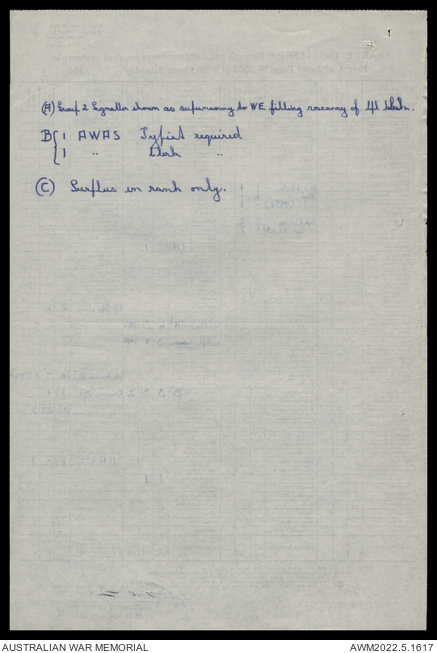 (A) Group 2 Signaller shown as supernumary to WE filling vacancy of
B { 1 AWAS Typist required
1 " Clerk "
(C) Surplus in rank only.
AUSTRALIAN WAR MEMORIAL
AWM2022.5.1617